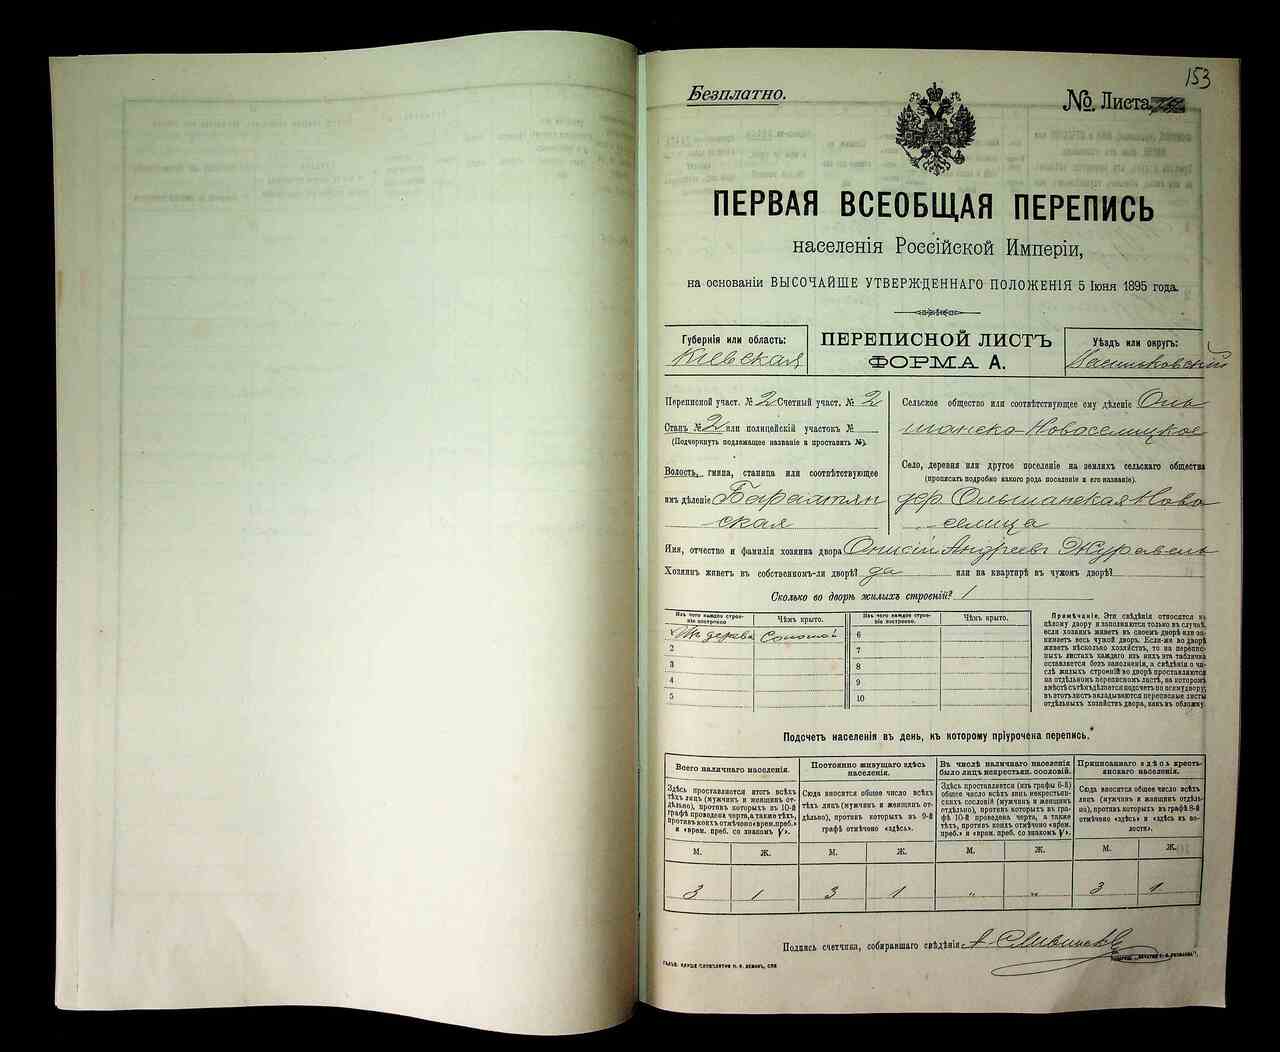 153
Безплатно.
№. Листа
ПЕРВАЯ ВСЕОБЩАЯ ПЕРЕПИСЬ
населенія Россійской Имперіи,
на основаніи ВЫСОЧАЙШЕ УТВЕРЖДЕННАГО ПОЛОЖЕНІЯ 5 Іюня 1895 года.
Губернія или область:
Кіевская
ПЕРЕПИСНОЙ ЛИСТЪ
ФОРМА А.
Уѣздъ или округъ:
Васильковскій
Переписной участ. № 2 Счетный участ. № 2
Станъ № 2 или полицейскій участокъ №
(Подчеркнуть подлежащее названіе и проставить №).
Волость, гмина, станица или соотвѣтствующее
имъ дѣленіе Барахтян
ская
Сельское общество или соотвѣтствующее ему дѣленіе Оль
шанско-Новоселицкое
Село, деревня или другое поселеніе на земляхъ сельскаго общества
(прописать подробно какого рода поселеніе и его названіе).
дер. Ольшанская Ново
селица
Имя, отчество и фамилія хозяина двора Онисій Андреевъ Журавель
Хозяинъ живетъ въ собственномъ-ли дворѣ? да или на квартирѣ въ чужомъ дворѣ?
Сколько во дворѣ жилыхъ строеній? 1
Изъ чего каждое строе-
ніе построено
Чѣмъ крыто.
Изъ чего каждое строе-
ніе построено.
Чѣмъ крыто.
Изъ дерева Соломой 6
2 7
3 8
4 9
5 10
Примѣчаніе. Эти свѣдѣнія относятся къ
цѣлому двору и заполняются только въ случаѣ,
если хозяинъ живетъ въ своемъ дворѣ или за-
нимаетъ весь чужой дворъ. Если-же во дворѣ
живетъ нѣсколько хозяйствъ, то на перепис-
ныхъ листахъ каждаго изъ нихъ эта табличка
оставляется безъ заполненія, а свѣдѣнія о чи-
слѣ жилыхъ строеній во дворѣ проставляются
на отдѣльномъ переписномъ листѣ, на которомъ
вмѣстѣ съ тѣмъ дѣлается подсчетъ по всему двору;
въ этотъ листъ вкладываются переписные листы
отдѣльныхъ хозяйствъ двора, какъ въ обложку.
Подсчетъ населенія въ день, къ которому пріурочена перепись.*
Всего наличнаго населенія.
Здѣсь проставляется итогъ всѣхъ
тѣхъ лицъ (мужчинъ и женщинъ от-
дѣльно), противъ которыхъ въ 10-й
графѣ проведена черта, а также тѣхъ,
противъ коихъ отмѣчено «врем. преб.»
и «врем. преб. со знакомъ V».
Постоянно живущаго здѣсь
населенія.
Сюда вносится общее число всѣхъ
тѣхъ лицъ (мужчинъ и женщинъ от-
дѣльно), противъ которыхъ въ 9-й
графѣ отмѣчено «здѣсь».
Въ числѣ наличнаго населенія
было лицъ некрестьян. сословій.
Здѣсь проставляется (изъ графы 6-й)
общее число всѣхъ лицъ некрестьян-
скихъ сословій (мужчинъ и женщинъ
отдѣльно), противъ которыхъ въ гра-
фѣ 10-й проведена черта, а также
тѣхъ, противъ коихъ отмѣчено «врем.
преб.» и «врем. преб. со знакомъ V».
Приписаннаго здѣсь кресть-
янскаго населенія.
Сюда вносится общее число всѣхъ
лицъ (мужчинъ и женщинъ отдѣль-
но), противъ которыхъ въ графѣ 8-й
отмѣчено «здѣсь» и «здѣсь въ во-
лости».
М. Ж. М. Ж. М. Ж. М. Ж.
3 1 3 1 " " 3 1
Подпись счетчика, собиравшаго свѣдѣнія